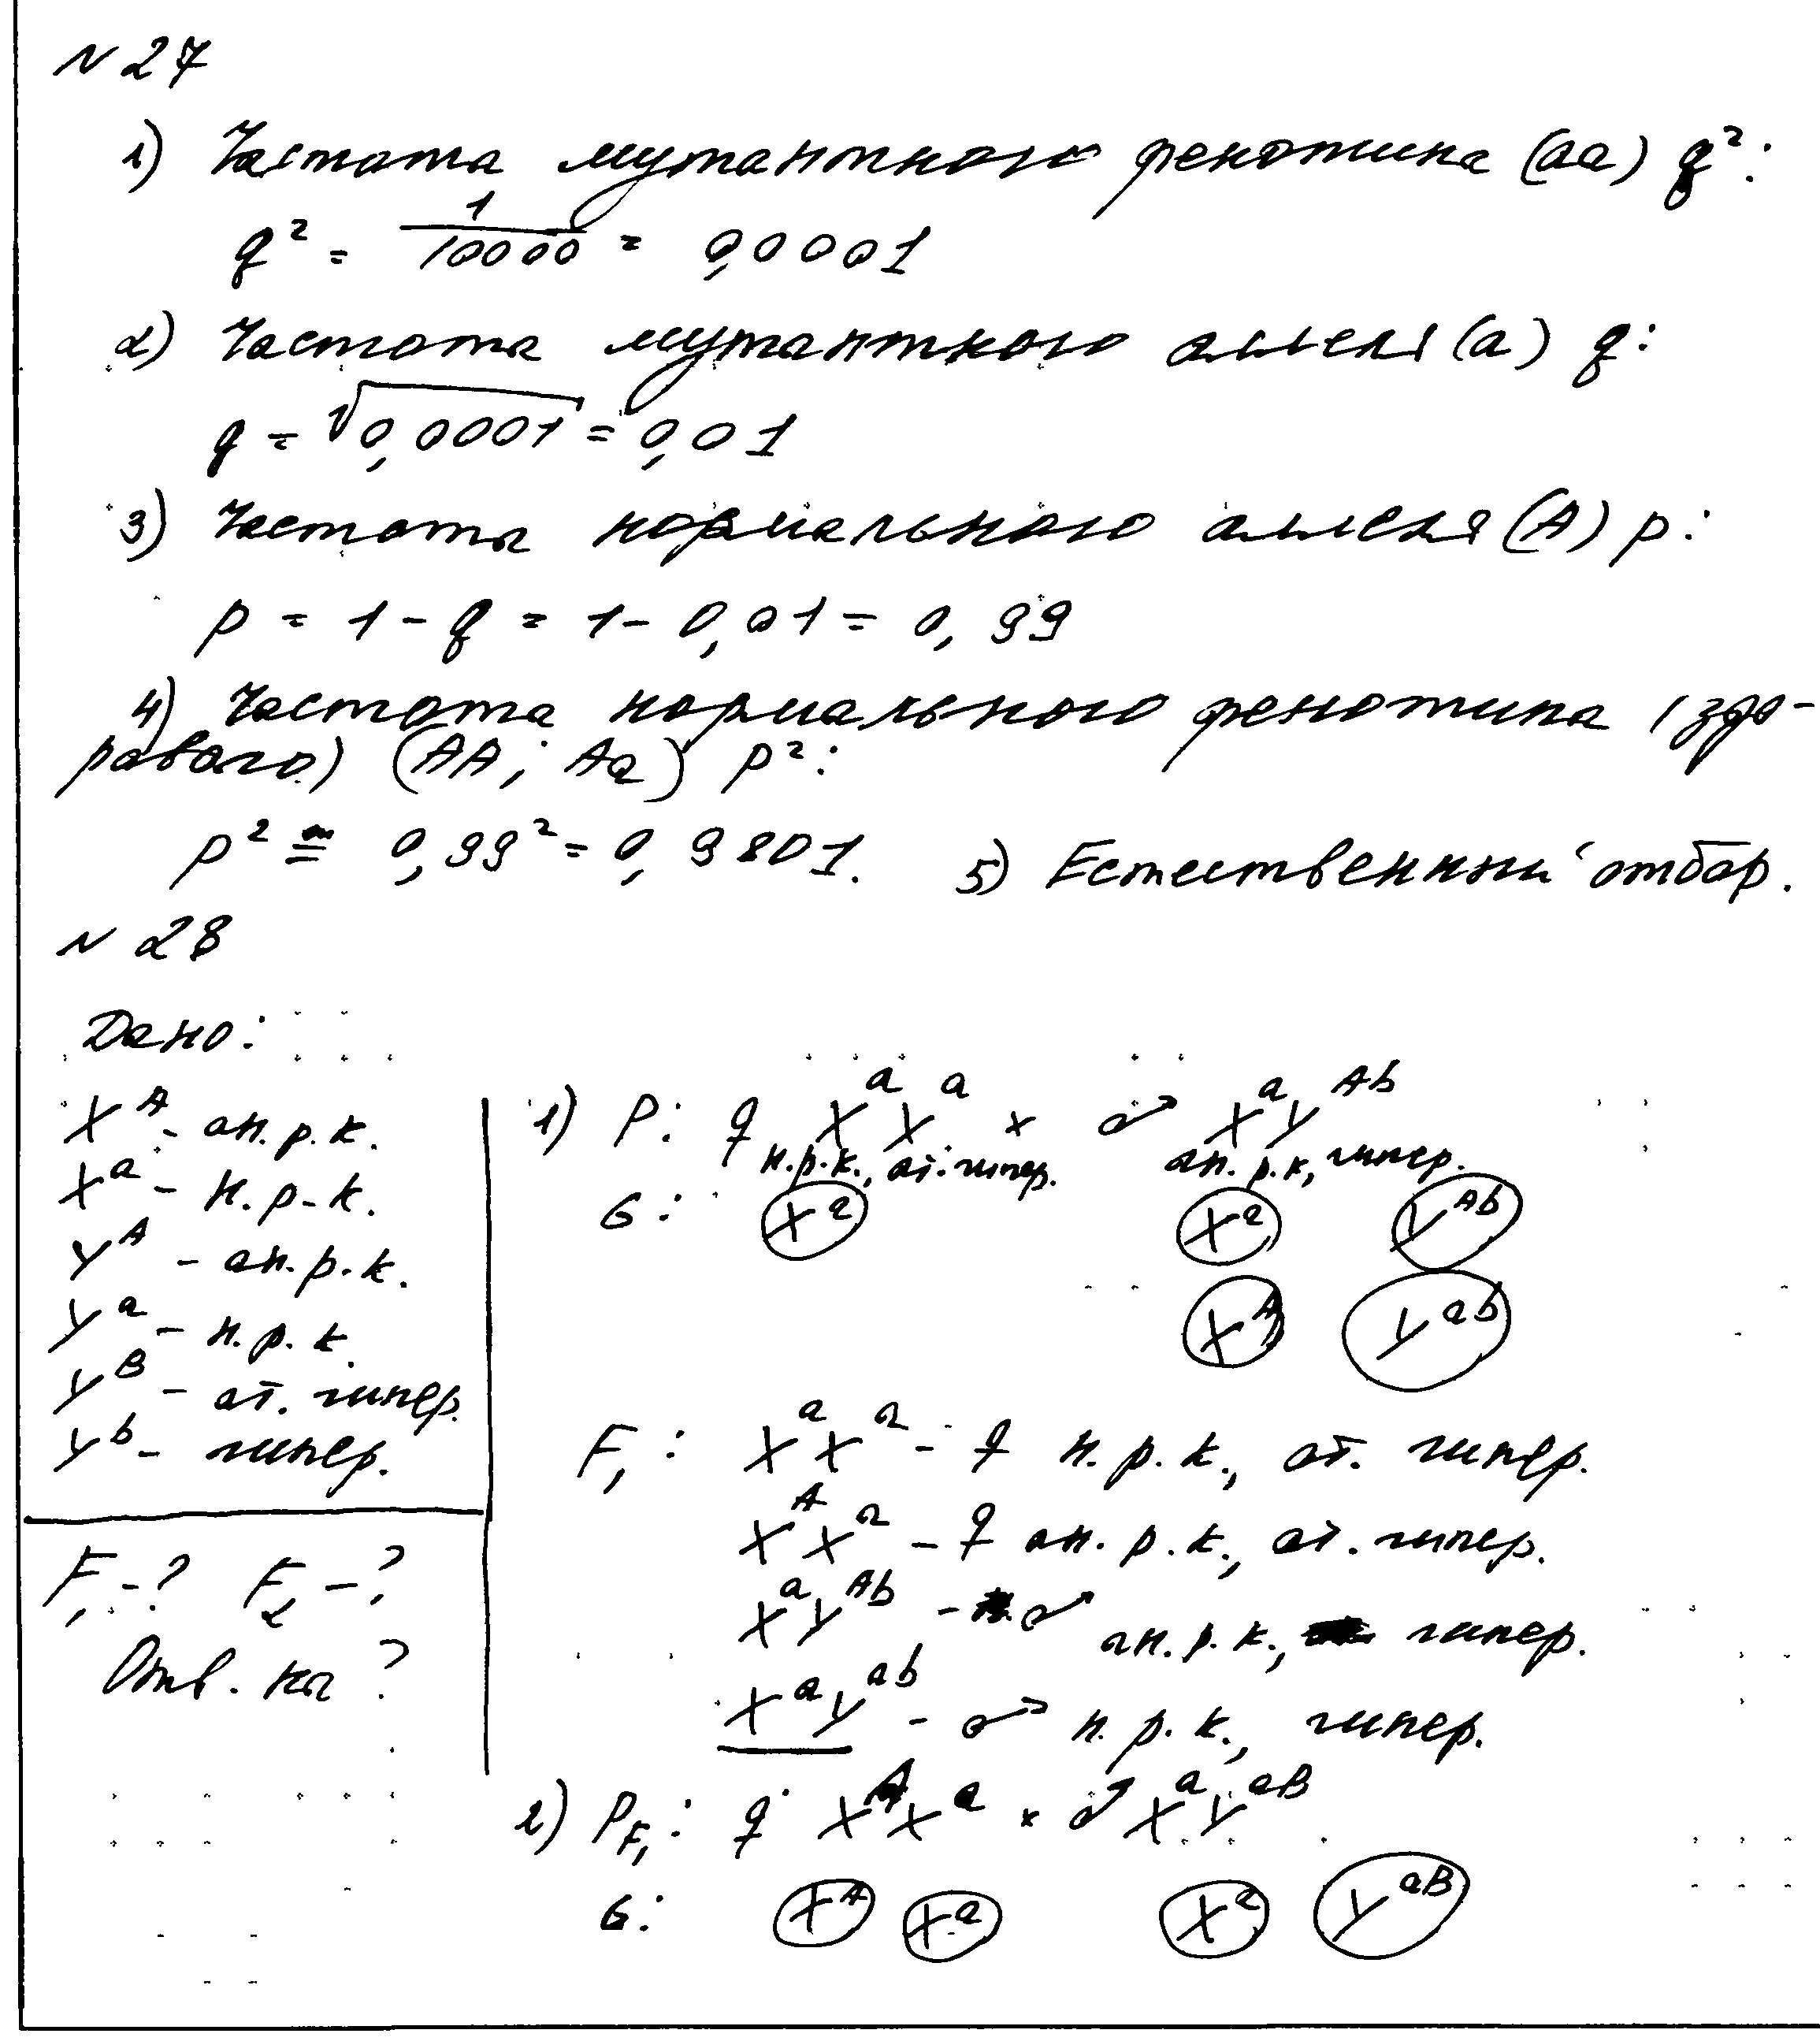 N 27
1) Частота мутантного фенотипа (aa) q²:
q² = 1/10000 = 0,0001
2) Частота мутантного аллеля (a) q:
q = √0,0001 = 0,01
3) Частота нормального аллеля (A) p:
p = 1 - q = 1 - 0,01 = 0,99
4) Частота нормального фенотипа (здо-
рового) (AA; Aa) p²:
p² = 0,99² = 0,9801. 5) Естественный отбор.
N 28
Дано:
X^A - ан. р. к.
X^a - н. р. к.
Y^A - ан. р. к.
Y^a - н. р. к.
Y^B - от. гипер.
Y^b - гипер.
F₁ - ? F₂ - ?
Отв. на ?
1) P: ♀ X^a X^a × ♂ X^a Y^Ab
н.р.к., от. гипер. ан. р. к., гипер.
G: X^a X^a Y^Ab
X^A Y^ab
F₁: X^a X^a - ♀ н. р. к., от. гипер.
X^A X^a - ♀ ан. р. к., от. гипер.
X^a Y^Ab - ♂ ан. р. к., гипер.
X^a Y^ab - ♂ н. р. к., гипер.
2) P_F₁: ♀ X^A X^a × ♂ X^a Y^aB
G: X^A X^a X^a Y^aB